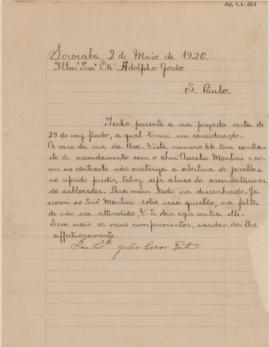 Sorocaba, 2 de Maio de 1920.
Illmo Snr. Dr. Adolpho Gordo
S. Paulo.
Tenho presente a sua prezada carta de
29 de mez findo, a qual tomei em consideração.
A casa da rua da Boa Vista, numero 66 tem contra-
cto de arrendamento com o snr Aurelio Montini e co-
mo no contracto não autoriza a abertura de janellas
no referido predio, talvez seja abuso do arrendatario ou
do sublocador. Para mim tudo isso desconhecido. Ja
escrevi ao Snr Montini sobre essa questão, na falta
de não ser attendido V. S. da agir contra elle.
Sem mais os meus comprimentos, saudando-lhe
affectuosamente.
Julio Cesar